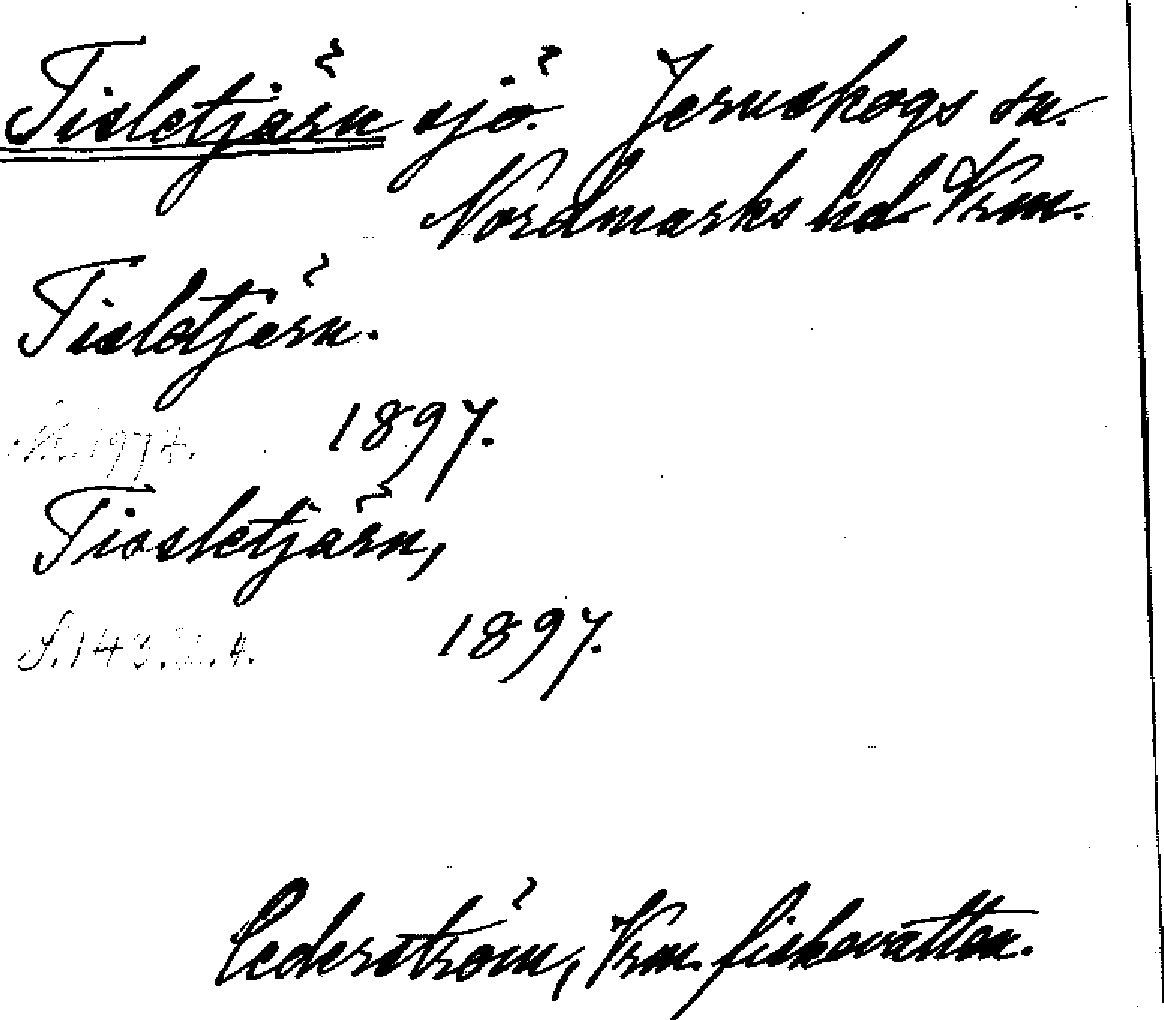 Tisletjärn sjö. Jernskogs sn.
Nordmarks hd Vrm.
Tisletjärn.
1897.
Tiosletjärn,
S. 143. 4. 1897.
Cederström, Vrm. fiskevatten.